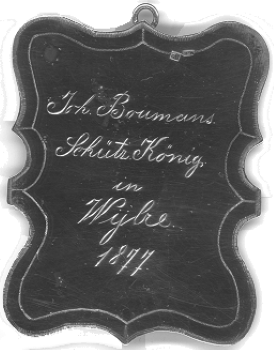 Joh. Boumans.
Schütz König,
in
Wylre.
1877.